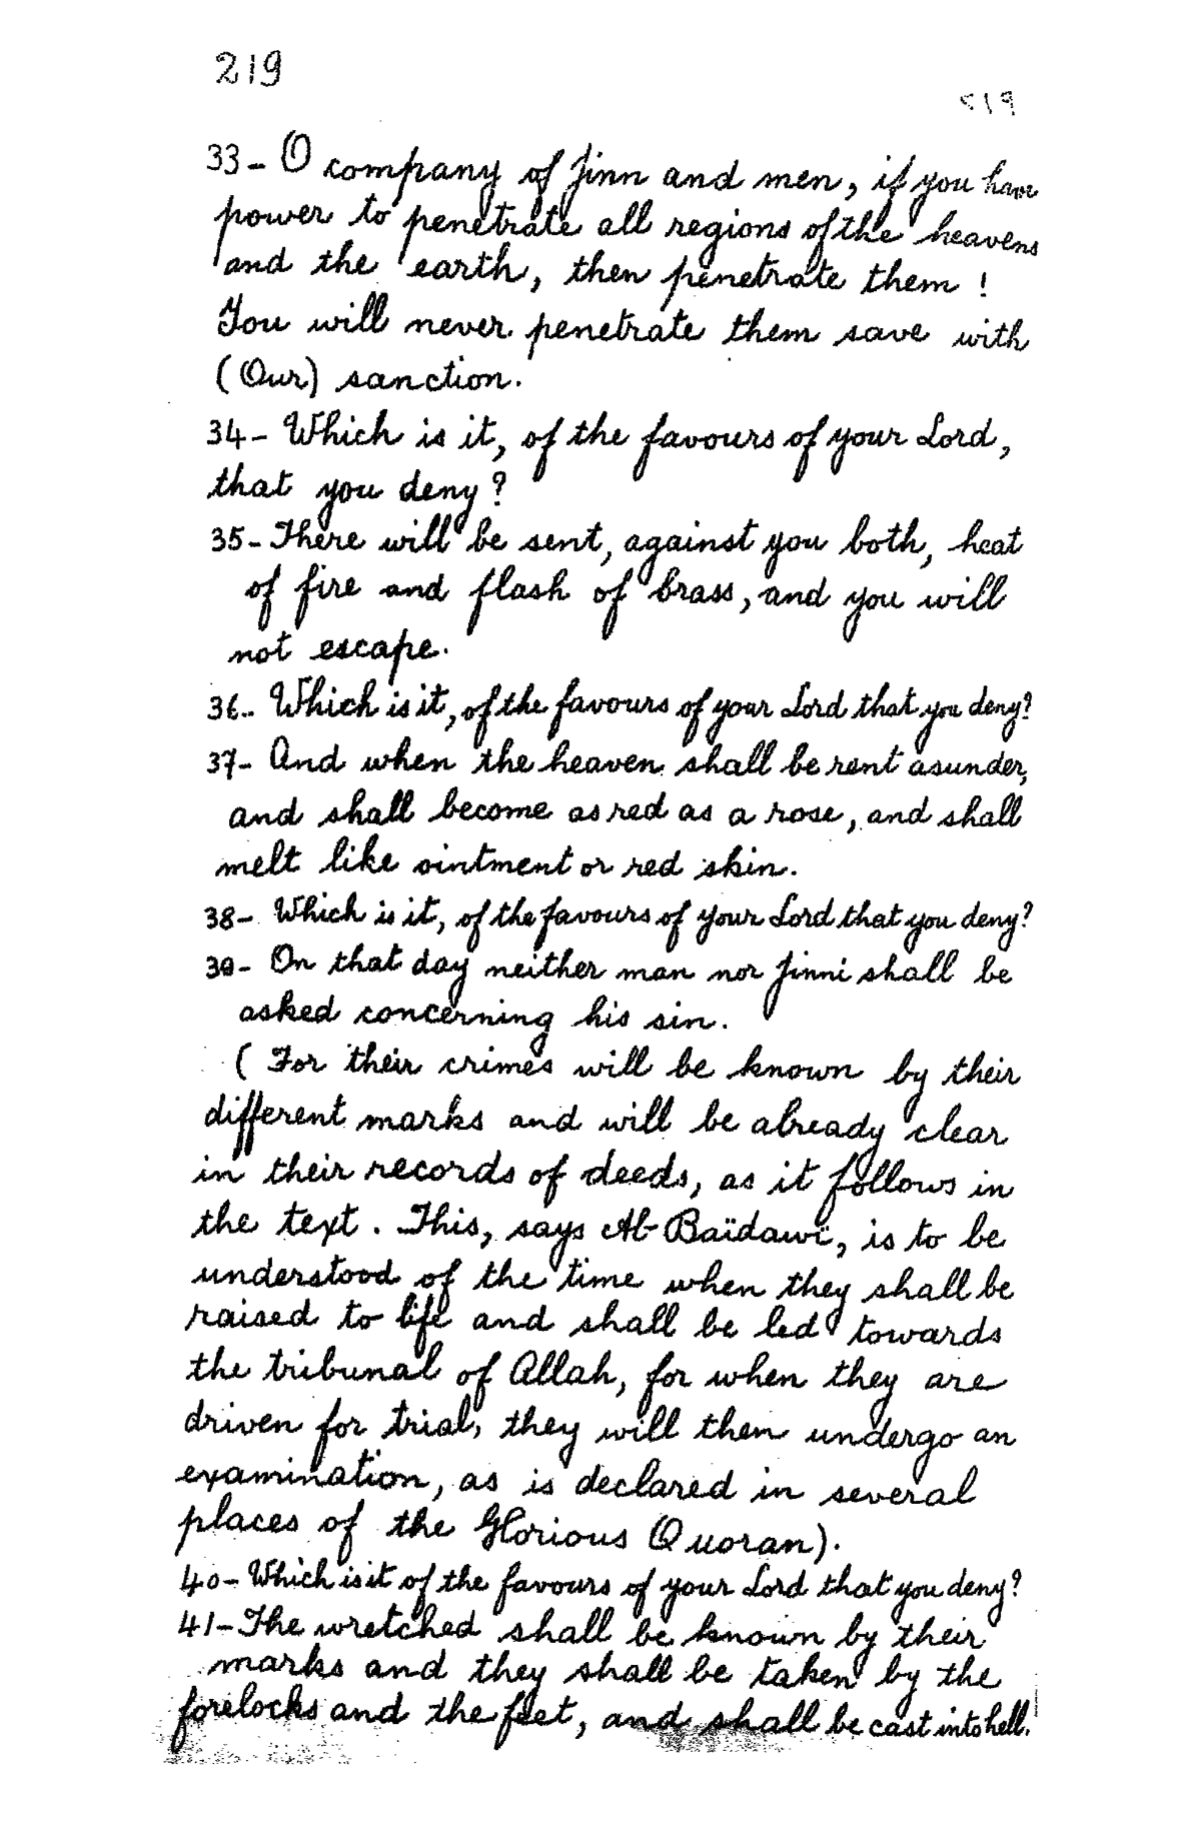 219
219
33- O company of Jinn and men, if you have
power to penetrate all regions of the heavens
and the earth, then penetrate them !
You will never penetrate them save with
(Our) sanction.
34- Which is it, of the favours of your Lord,
that you deny?
35- There will be sent, against you both, heat
of fire and flash of brass, and you will
not escape.
36.. Which is it, of the favours of your Lord that you deny?
37- And when the heaven shall be rent asunder,
and shall become as red as a rose, and shall
melt like ointment or red skin.
38- Which is it, of the favours of your Lord that you deny?
39- On that day neither man nor Jinni shall be
asked concerning his sin.
( For their crimes will be known by their
different marks and will be already clear
in their records of deeds, as it follows in
the text. This, says Al-Baïdawï, is to be
understood of the time when they shall be
raised to life and shall be led towards
the tribunal of Allah, for when they are
driven for trial, they will then undergo an
examination, as is declared in several
places of the Glorious Quoran).
40- Which is it of the favours of your Lord that you deny?
41- The wretched shall be known by their
marks and they shall be taken by the
forelocks and the feet, and shall be cast into hell.